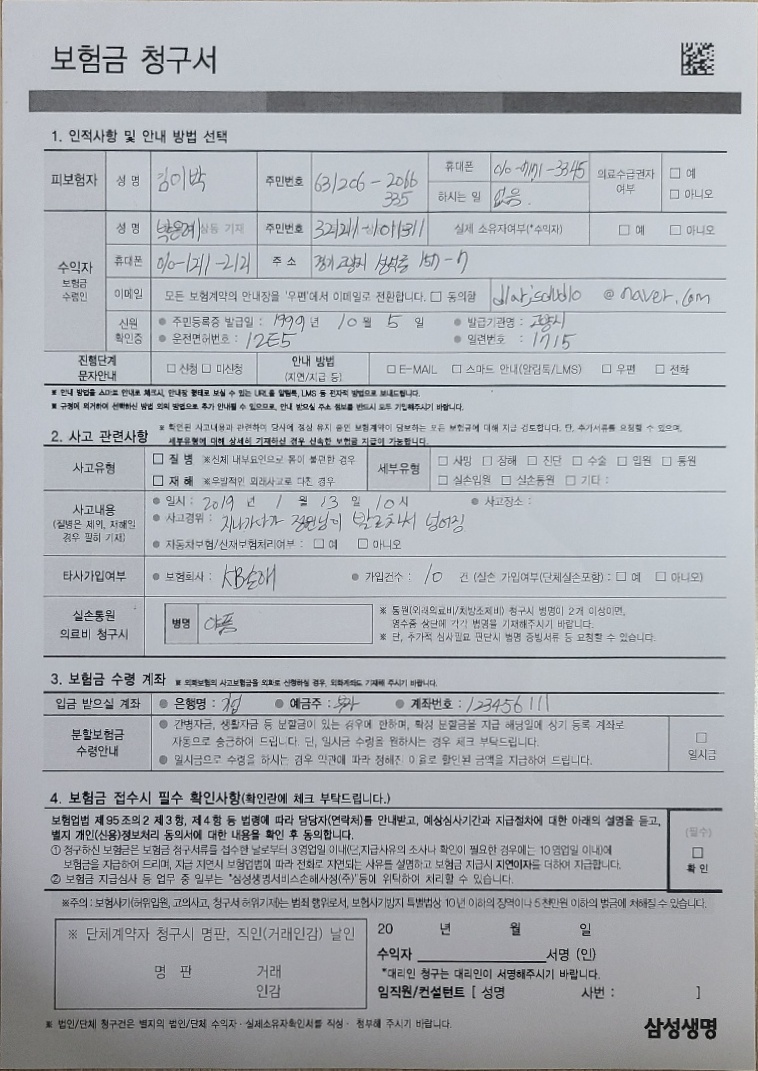 보험금 청구서
1. 인적사항 및 안내 방법 선택
피보험자 성 명 김이박 주민번호 631206 - 2066 335 휴대폰 010 3345 의료수급권자 여부 □ 예 □ 아니오
하시는 일 없음.
수익자 보험금 수령인 성 명 주민번호 실제 소유자여부(*수익자) □ 예 □ 아니오
휴대폰 010-1211-2121 주 소 경기 고양시 157-7
이메일 모든 보험계약의 안내장을 '우편'에서 이메일로 전환합니다. □ 동의함 @ naver.com
신원 확인증 ● 주민등록증 발급일 : 1999 년 10 월 5 일 ● 발급기관명 : 고양시
● 운전면허번호 : 12E5 ● 일련번호 : 1715
진행단계 문자안내 □ 신청 □ 미신청 안내 방법 (지연/지급 등) □ E-MAIL □ 스마트 안내(알림톡/LMS) □ 우편 □ 전화
※ 안내 방법을 스마트 안내로 체크시, 안내장 형태로 보실 수 있는 URL을 알림톡, LMS 등 전자적 방법으로 보내드립니다.
※ 규정에 의거하여 선택하신 방법 외의 방법으로 추가 안내될 수 있으므로, 안내 받으실 주소 정보를 반드시 모두 기입해주시기 바랍니다.
2. 사고 관련사항 ※ 확인된 사고내용과 관련하여 당사에 정상 유지 중인 보험계약이 담보하는 모든 보험금에 대해 지급 검토합니다. 단, 추가서류를 요청할 수 있으며,
세부유형에 대해 상세히 기재하신 경우 신속한 보험금 지급이 가능합니다.
사고유형 □ 질 병 ※신체 내부요인으로 몸이 불편한 경우 세부유형 □ 사망 □ 장해 □ 진단 □ 수술 □ 입원 □ 통원
□ 재 해 ※우발적인 외래사고로 다친 경우 □ 실손입원 □ 실손통원 □ 기타 :
사고내용 (질병은 제외, 재해일 경우 필히 기재) ● 일시 : 2019 년 1 월 13 일 10 시 ● 사고장소 :
● 사고경위 : 지나가다가 발로차서 넘어짐
● 자동차보험/산재보험처리여부 : □ 예 □ 아니오
타사가입여부 ● 보험회사 : KB손해 ● 가입건수 : 10 건 (실손 가입여부(단체실손포함) : □ 예 □ 아니오)
실손통원 의료비 청구시 병명 아픔 ※ 통원(외래의료비/처방조제비) 청구시 병명이 2개 이상이면,
영수증 상단에 각각 병명을 기재해주시기 바랍니다.
※ 단, 추가적 심사필요 판단시 병명 증빙서류 등 요청할 수 있습니다.
3. 보험금 수령 계좌 ※ 외화보험의 사고보험금을 외화로 신청하실 경우, 외화계좌도 기재해 주시기 바랍니다.
입금 받으실 계좌 ● 은행명 : ● 예금주 : ● 계좌번호 : 123456111
분할보험금 수령안내 ● 간병자금, 생활자금 등 분할금이 있는 경우에 한하며, 확정 분할금을 지급 해당일에 상기 등록 계좌로
자동으로 송금하여 드립니다. 단, 일시금 수령을 원하시는 경우 체크 부탁드립니다.
● 일시금으로 수령을 하시는 경우 약관에 따라 정해진 이율로 할인된 금액을 지급하여 드립니다. □ 일시금
4. 보험금 접수시 필수 확인사항(확인란에 체크 부탁드립니다.)
보험업법 제95조의2 제3항, 제4항 등 법령에 따라 담당자(연락처)를 안내받고, 예상심사기간과 지급절차에 대한 아래의 설명을 듣고,
별지 개인(신용)정보처리 동의서에 대한 내용을 확인 후 동의합니다.
① 청구하신 보험금은 보험금 청구서류를 접수한 날로부터 3영업일 이내(단,지급사유의 조사나 확인이 필요한 경우에는 10영업일 이내)에
보험금을 지급하여 드리며, 지급 지연시 보험업법에 따라 전화로 지연되는 사유를 설명하고 보험금 지급시 지연이자를 더하여 지급합니다.
② 보험금 지급심사 등 업무 중 일부는 "삼성생명서비스손해사정(주)"등에 위탁하여 처리할 수 있습니다.
(필수) □ 확 인
※주의 : 보험사기(허위입원, 고의사고, 청구서 허위기재)는 범죄 행위로서, 보험사기방지 특별법상 10년 이하의 징역이나 5천만원 이하의 벌금에 처해질 수 있습니다.
※ 단체계약자 청구시 명판, 직인(거래인감) 날인
명 판 거래 인감
20 년 월 일
수익자 서명 (인)
*대리인 청구는 대리인이 서명해주시기 바랍니다.
임직원/컨설턴트 [ 성명 사번 : ]
※ 법인/단체 청구건은 별지의 법인/단체 수익자 · 실제소유자확인서를 작성 · 첨부해 주시기 바랍니다.
삼성생명